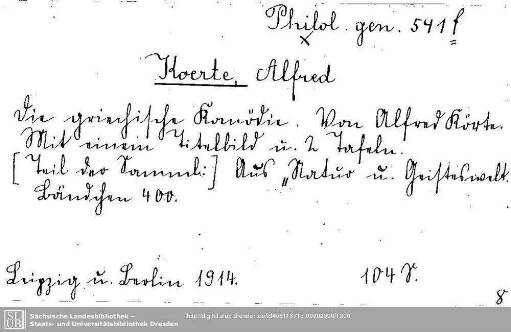 Philol. gen. 541 f
Koerte, Alfred
Die griechische Komödie. Von Alfred Körte.
Mit einem Titelbild u. 2 Tafeln.
[Teil der Samml.:] Aus „Natur u. Geisteswelt.
Bändchen 400.
Leipzig u. Berlin 1914. 104 S.
8
Sächsische Landesbibliothek –
Staats- und Universitätsbibliothek Dresden